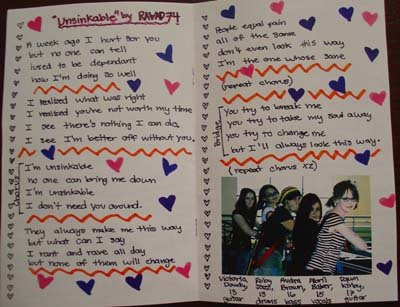 "Unsinkable" by RAWD74
A week ago I hurt for you
but no one can tell
I used to be dependant
now I'm doing so well
I realized what was right
I realized you're not worth my time
I see there's nothing I can do.
I see I'm better off without you.
Chorus
I'm unsinkable
no one can bring me down
I'm unsinkable
I don't need you around.
They always make me this way
but what can I say
I rant and rave all day
but none of them will change
People equal pain
all of the same
don't even look this way
I'm the one whose sane
(repeat chorus)
Bridge
you try to break me
you try to take my soul away
you try to change me
but I'll always look this way.
(repeat chorus x2)
Victoria Dowdy, 15 guitar
Ruby Steel, 13 drums
Andrea Brown, 16 bass
Abori Baker, 15 vocals
Rawn Kirby, 14 guitar